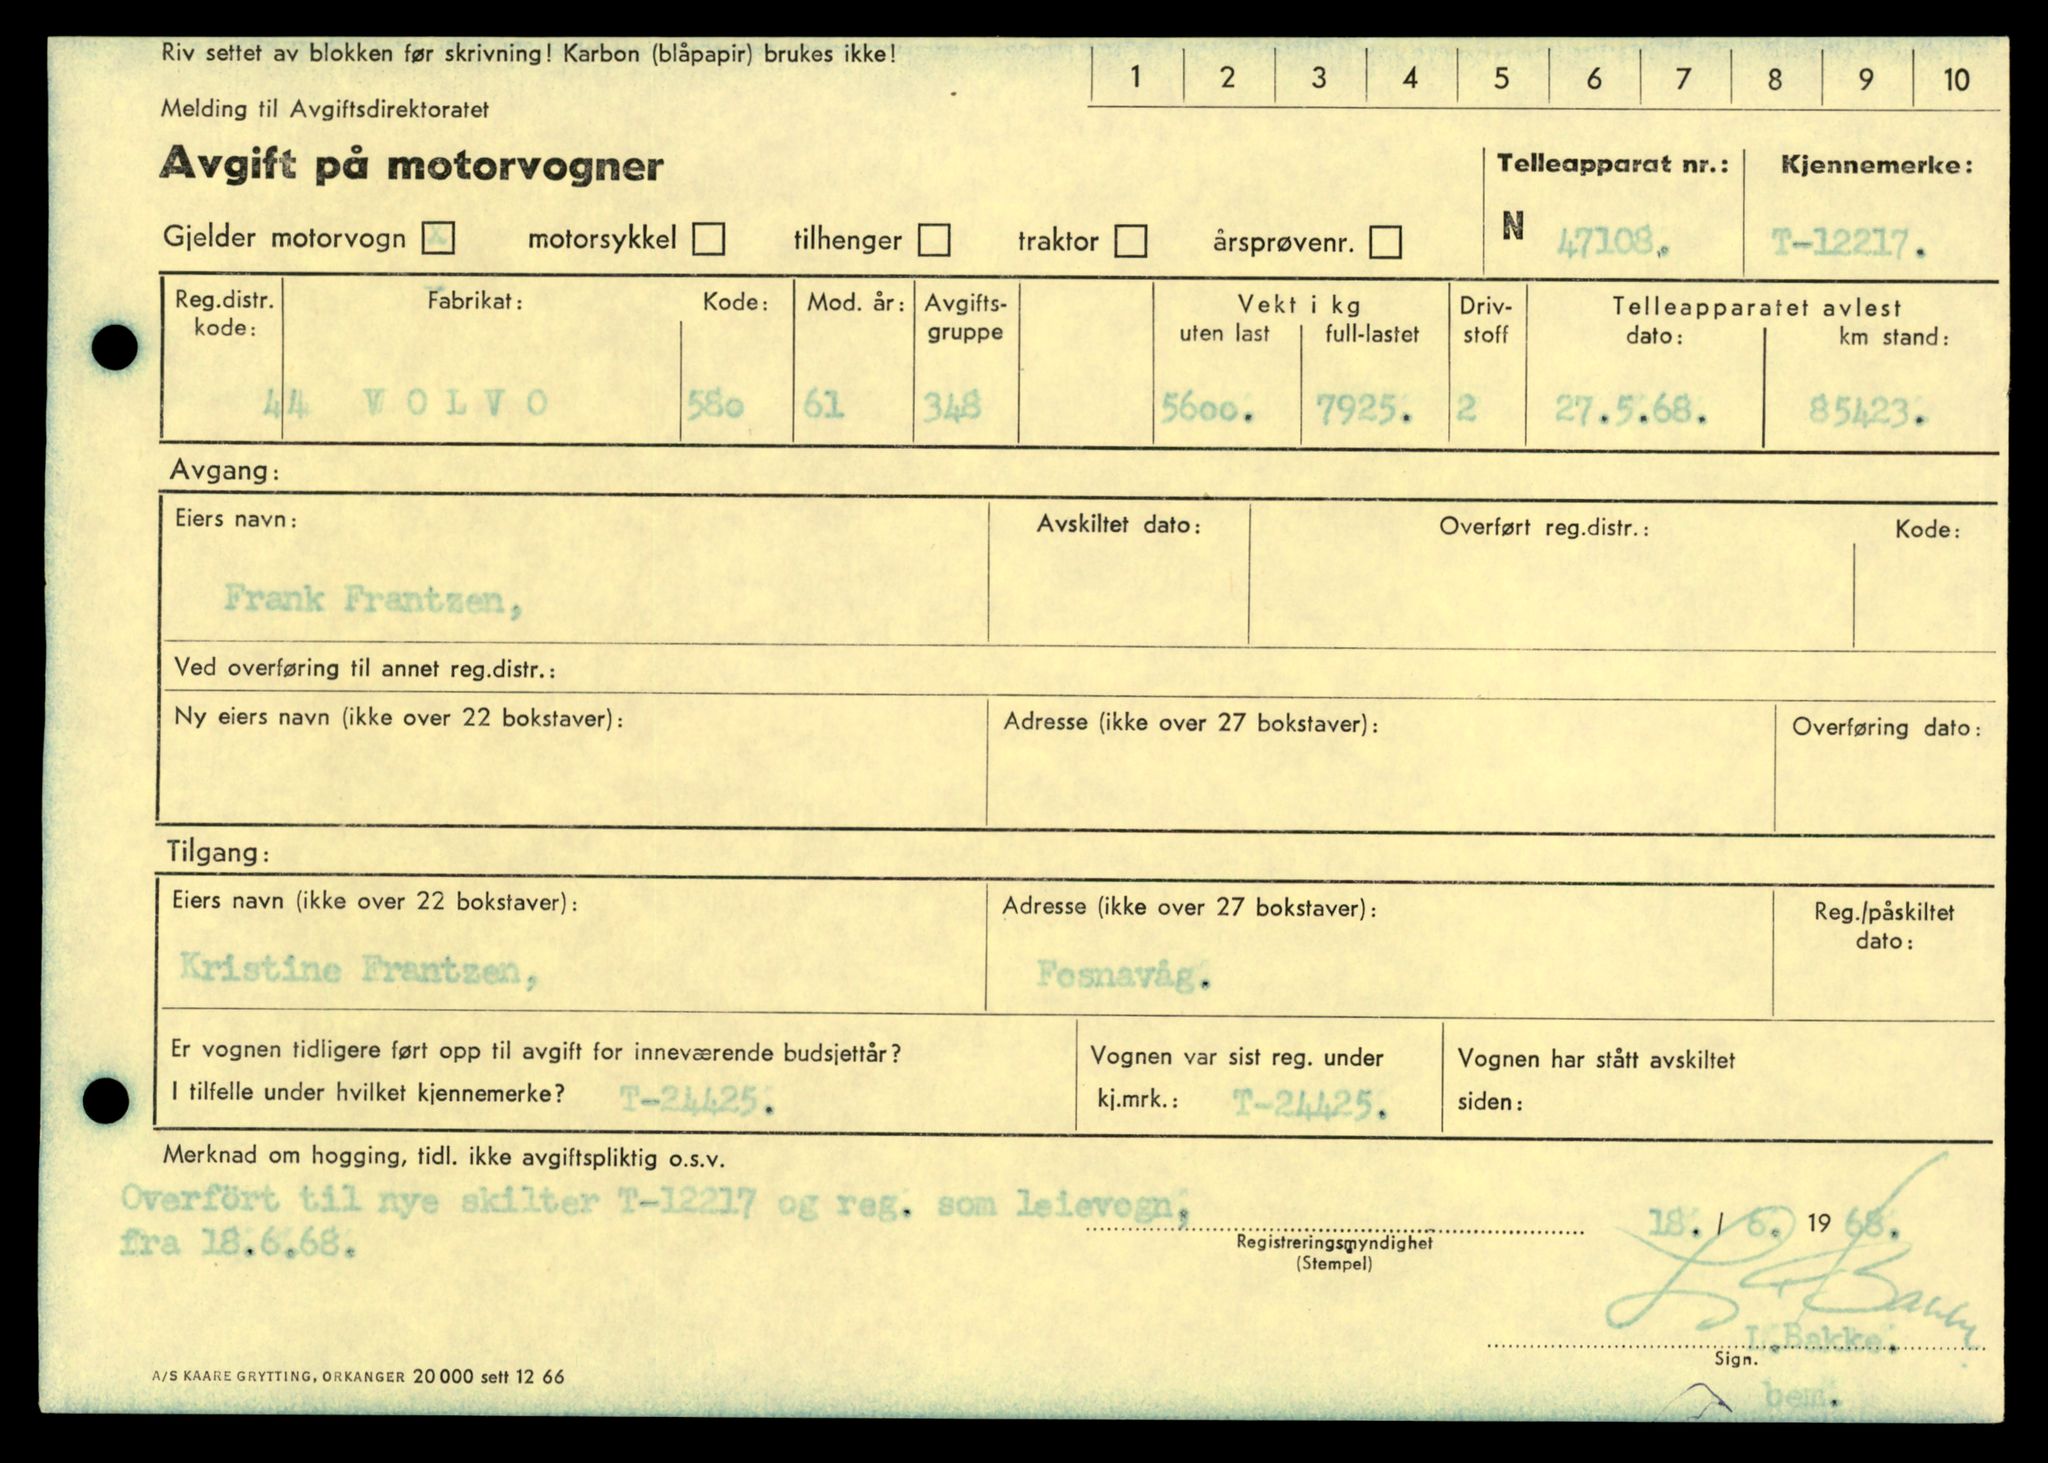 Riv settet av blokken før skrivning! Karbon (blåpapir) brukes ikke!
1 2 3 4 5 6 7 8 9 10
Melding til Avgiftsdirektoratet
Avgift på motorvogner
Telleapparat nr.: Kjennemerke:
Gjelder motorvogn x motorsykkel tilhenger traktor årsprøvenr.
N 47108. T-12217.
Reg.distr. kode: Fabrikat: Kode: Mod. år: Avgifts-gruppe Vekt i kg Driv-stoff Telleapparatet avlest
uten last full-lastet dato: km stand:
44 VOLVO 580 61 348 5600. 7925. 2 27.5.68. 85423.
Avgang:
Eiers navn: Avskiltet dato: Overført reg.distr.: Kode:
Frank Frantzen,
Ved overføring til annet reg.distr.:
Ny eiers navn (ikke over 22 bokstaver): Adresse (ikke over 27 bokstaver): Overføring dato:
Tilgang:
Eiers navn (ikke over 22 bokstaver): Adresse (ikke over 27 bokstaver): Reg./påskiltet dato:
Kristine Frantzen, Fosnavåg.
Er vognen tidligere ført opp til avgift for inneværende budsjettår? Vognen var sist reg. under Vognen har stått avskiltet
I tilfelle under hvilket kjennemerke? T-24425. kj.mrk.: T-24425. siden:
Merknad om hogging, tidl. ikke avgiftspliktig o.s.v.
Overfört til nye skilter T-12217 og reg. som leievogn,
fra 18.6.68.
18. / 6. 19 68.
Registreringsmyndighet
(Stempel)
L Bakke
L.Bakke.
Sign.
bem.
A/S KAARE GRYTTING, ORKANGER 20 000 sett 12 66